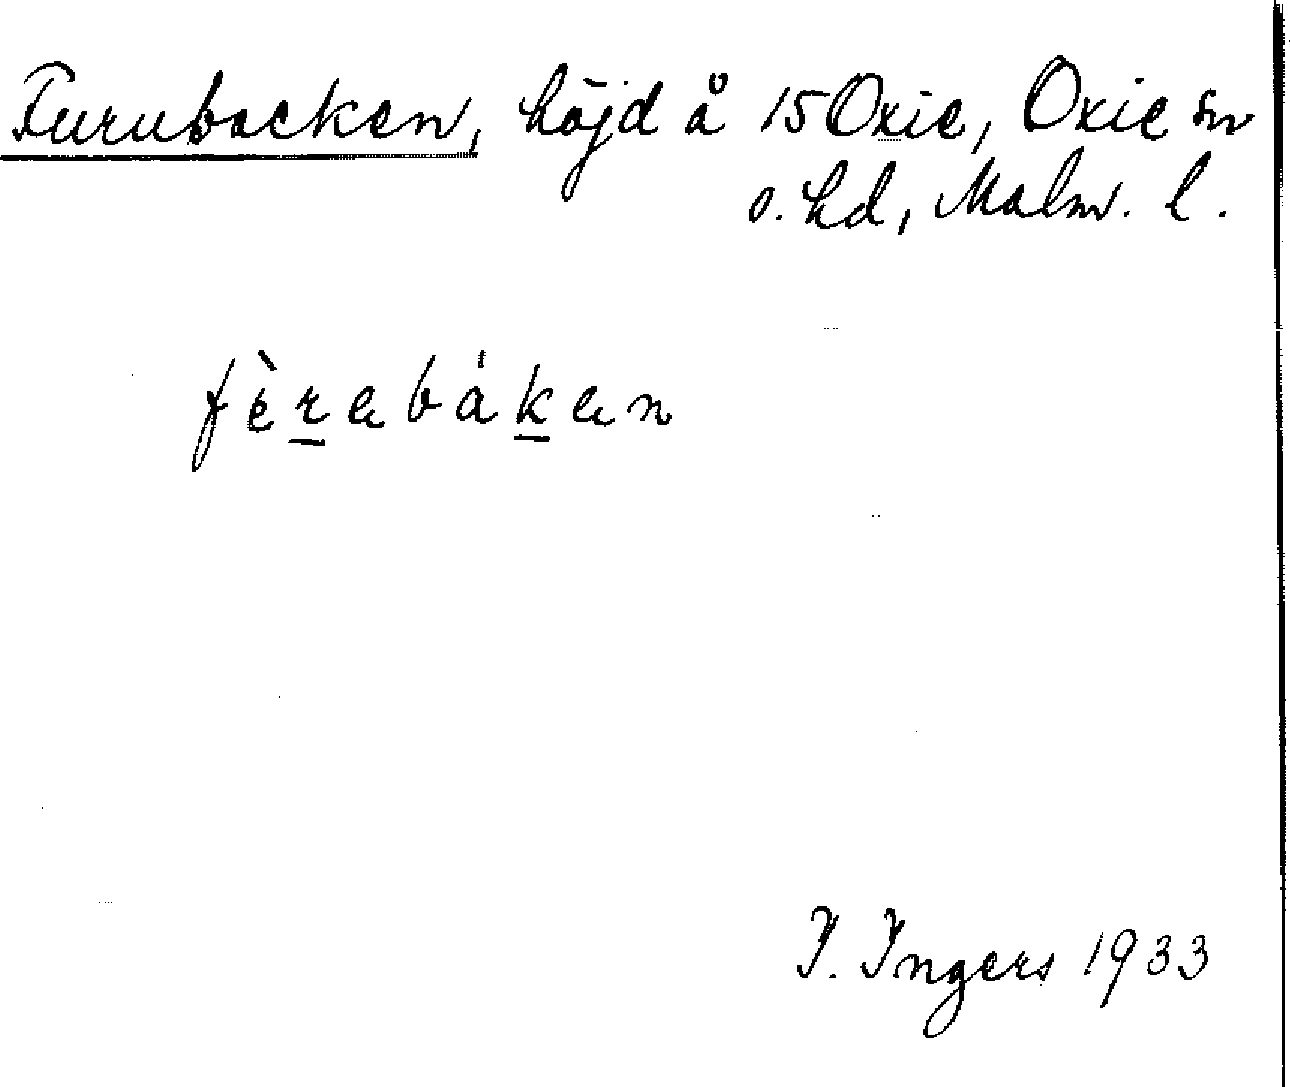 Furubacken, höjd å 15 Oxie, Oxie sn
o. hd, Malm. l.
fèrabákan
I. Ingers 1933